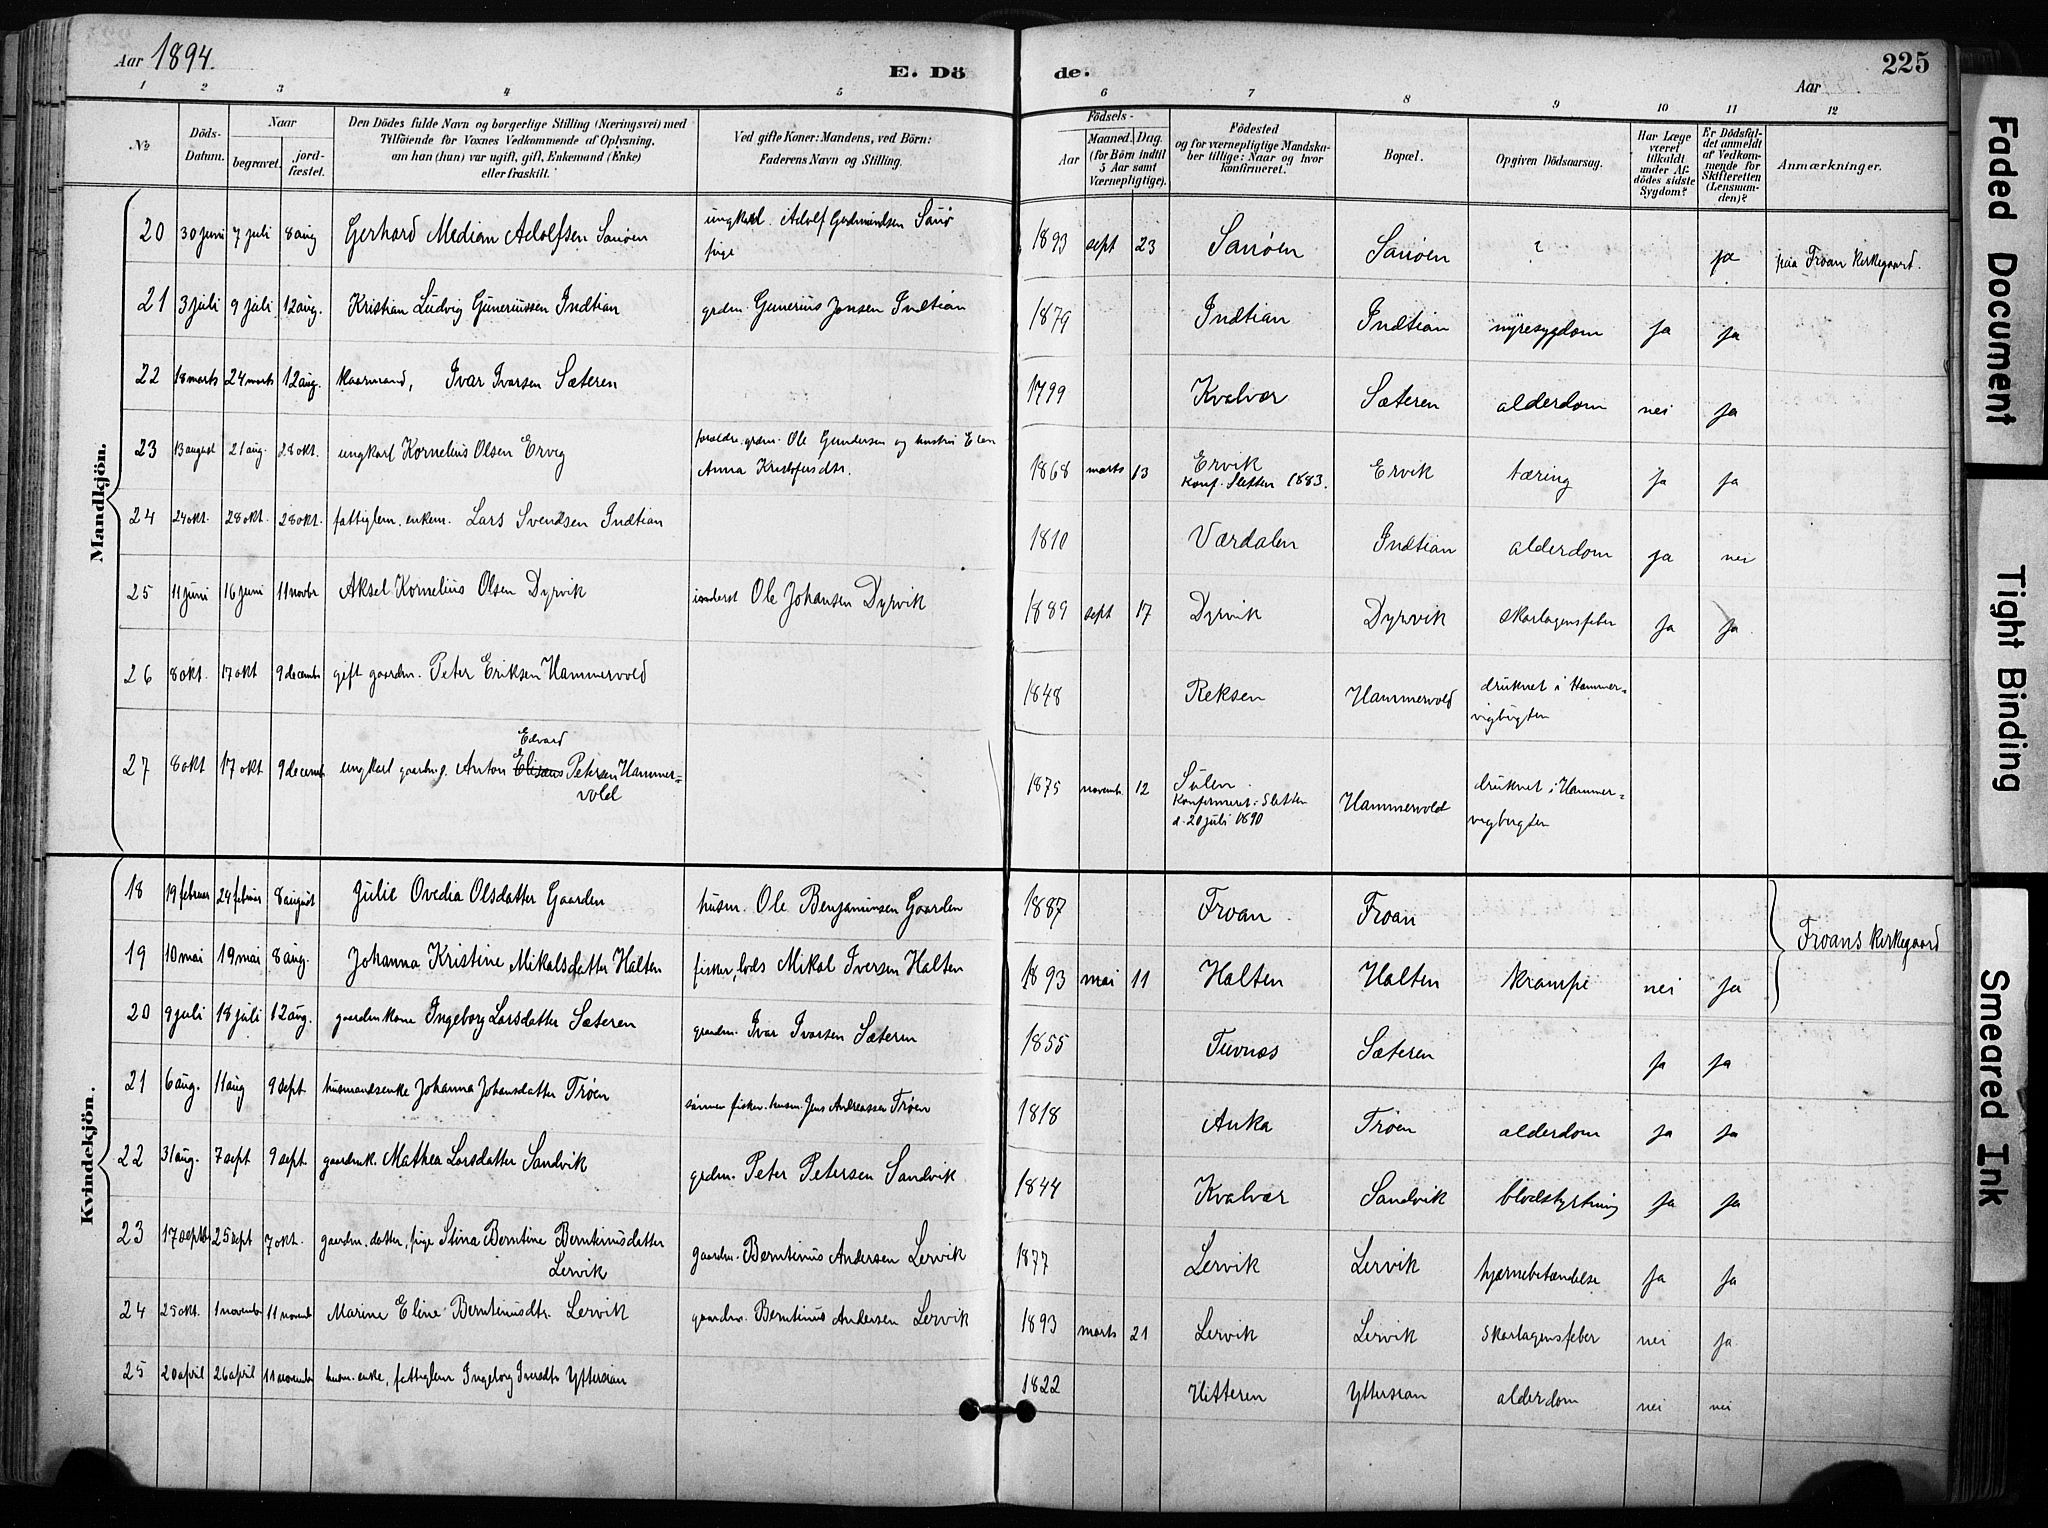 Aar 1894.
E. Dö de.
Aar
225
1 2 3 4 5 6 7 8 9 10 11 12
No
Döds-Datum.
Naar
begravet.
jord-fæstet.
Den Dödes fulde Navn og borgerlige Stilling (Næringsvei) med
Tilföiende for Voxnes Vedkommende af Oplysning,
om han (hun) var ugift, gift, Enkemand (Enke)
eller fraskilt.
Ved gifte Koner: Mandens, ved Börn:
Faderens Navn og Stilling.
Födsels-
Aar
Maaned. Dag.
(for Börn indtil
5 Aar samt
Værnepligtige).
Födested
og for værnepligtige Mandska-
ber tillige: Naar og hvor
konfirmeret.
Bopæl.
Opgiven Dödsaarsag.
Har Læge
været
tilkaldt
under Af-
dödes sidste
Sygdom?
Er Dödsfal-
det anmeldt
af Vedkom-
mende for
Skifteretten
(Lensman-
den)?
Anmærkninger.
Mandkjön.
20 30 juni 7 juli 8 aug Gerhard Median Adolfsen Sauøen ungkarl. Adolf Gudmundsen Sauø 1893 sept 23 Sauøen Sauøen ? ja paa Froan Kirkegaard.
pige
21 3 juli 9 juli 12 aug. Kristian Ludvig Guneriussen Indtian grdm. Gunerius Jonsen Indtian 1879 Indtian Indtian nyresygdom ja ja
22 18 marts 24 marts 12 aug. kaarmand, Ivar Ivarsen Sæteren 1799 Kvalvær Sæteren alderdom nei ja
23 13 august 21 aug. 28 okt. ungkarl Kornelius Olsen Ervig forældre. grdm. Ole Gundersen og hustru Elen
Anna Kristofersdtr. 1868 marts 13 Ervik
Konf. Sletten 1883. Ervik tæring ja ja
24 24 okt. 28 okt. 28 okt. fattiglem. enkem. Lars Svendsen Indtian 1810 Værdalen Indtian alderdom ja nei
25 11 juni 16 juni 11 novbr Aksel Kornelius Olsen Dyrvik inderst Ole Johansen Dyrvik 1889 sept 17 Dyrvik Dyrvik skarlagensfeber ja ja.
26 8 okt. 17 okt 9 decembr gift gaardm. Peter Eriksen Hammervold 1848 Reksen Hammervold druknet i Hammer=
vigbugten
27 8 okt 17 okt 9 decemb. ungkarl gaardm s. Anton Edvard Petersen Hammer=
vold 1875 novemb. 12 Sulen.
Konfirmeret: Sletten
d. 20 juli 1890 Hammervold druknet i Hammer=
vigbugten
Kvindekjön.
18 19 februar 24 februar 8 august Julie Ovedia Olsdatter Gaarden husm. Ole Benjaminsen Gaarden 1887 Froan Froan
Froans Kirkegaard
19 10 mai 19 mai 8 aug. Johanna Kristine Mikalsdatter Halten fisker, lods Mikal Iversen Halten 1893 mai 11 Halten Halten Krampe nei ja
20 9 juli 18 juli 12 aug. gaardm kone Ingeborg Larsdatter Sæteren graadm. Ivar Ivarsen Sæteren 1855 Tuvnæs Sæteren ja ja
21 6 aug. 11 aug 9 sept. husmandsenke Johanna Johansdatter Trøen sønnen fisker. husm. Jens Andreassen Trøen 1818 Auka Trøen alderdom ja ja
22 31 aug. 7 sept 9 sept. gaardmk. Mathea Larsdatter Sandvik grdm. Peter Petersen Sandvik 1844 Kvalvær Sandvik blodstyrtning ja ja
23 17 septb 25 sept 7 okt. gaardm. datter, pige Stina Berntine Berntinusdatter
Lervik gaardm. Berntinus Andersen Lervik 1877 Lervik Lervik hjernebetændelse ja ja
24 25 okt. 1 novembr 11 novemb Marine Eline Berntinusdtr. Lervik gaardm. Berntinus Andersen Lervik 1893 marts 21 Lervik Lervik skarlagensfeber nei ja.
25 20 april 26 april 11 november husm. enke, fattiglem Ingeborg Yttersian 1822 Hitteren Yttersian alderdom nei nei
Faded Document
Tight Binding
Smeared Ink